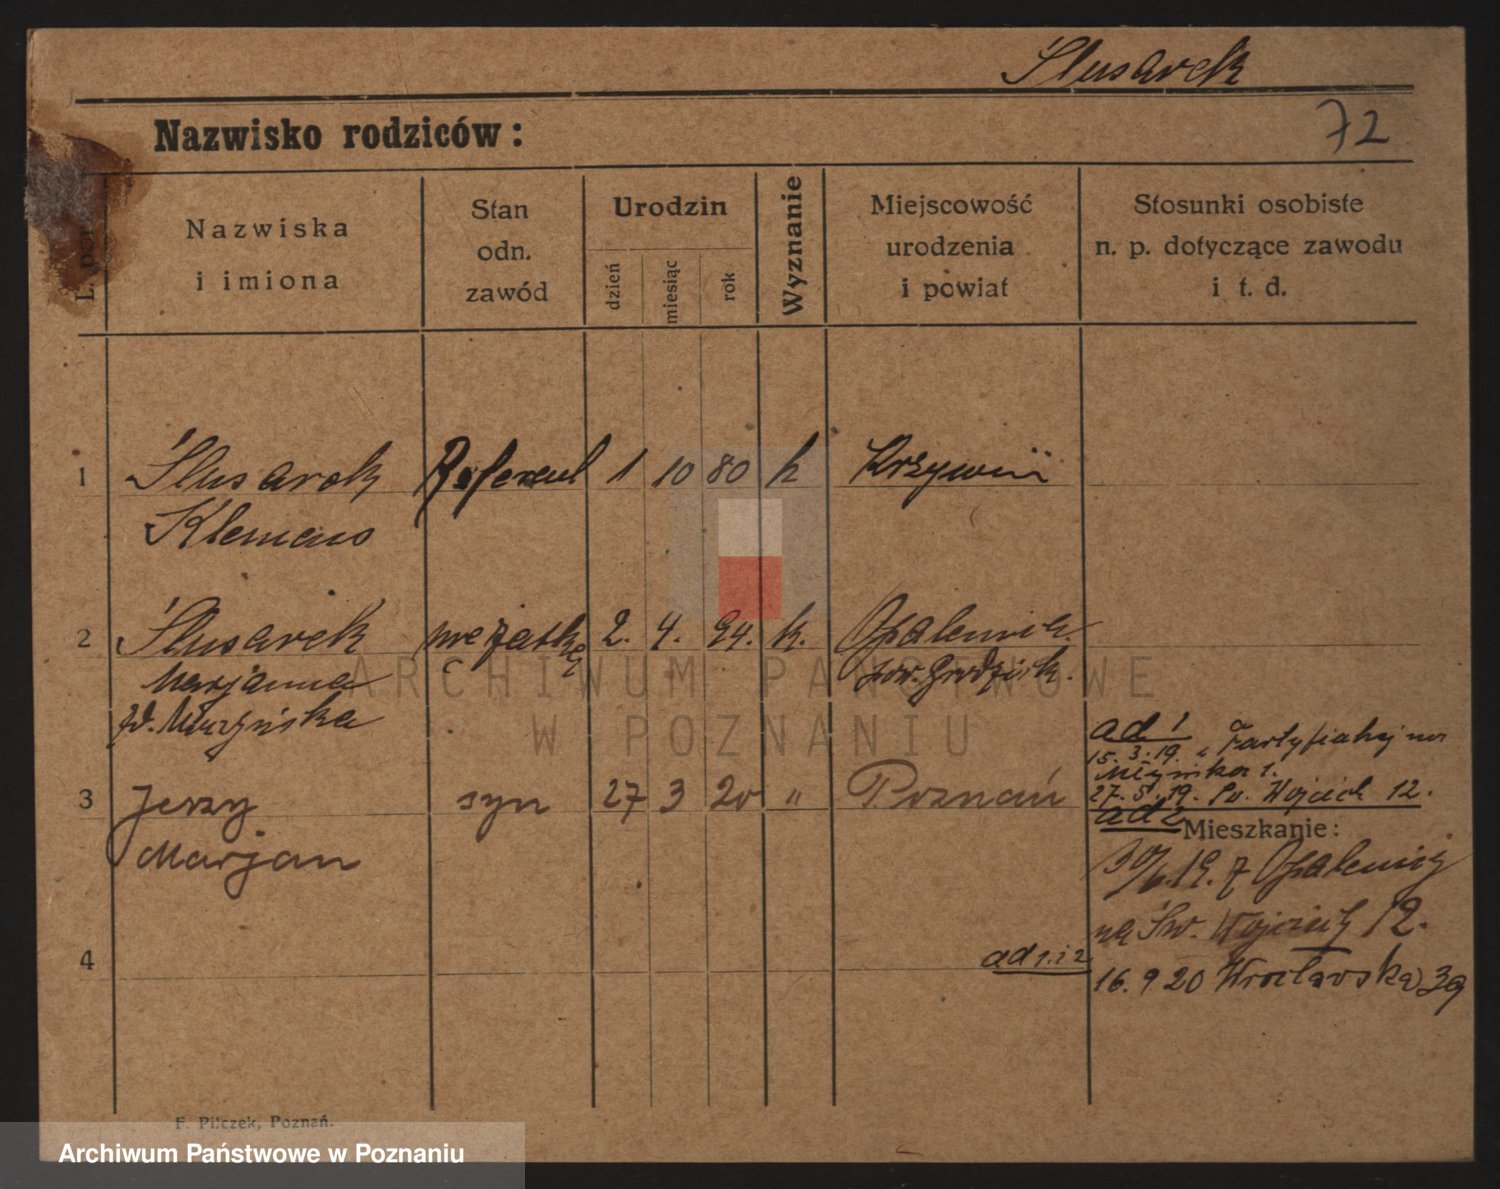 Ślusarek
72
Nazwisko rodziców:
L. por.
Nazwiska
i imiona
Stan
odn.
zawód
Urodzin
dzień
miesiąc
rok
Wyznanie
Miejscowość
urodzenia
i powiat
Stosunki osobiste
n. p. dotyczące zawodu
i t. d.
1 Ślusarek Referent 1 10 80 k Krzywiń
Klemens
2 Ślusarek mężatka 2. 4. 94. k. Opalenica
Marjanna pow. Grodzisk.
zd. Muszyńska
ad 1
15.3.19.
27.5.19. Św. Wojciech 12.
3 Jerzy syn 27 3 20 " Poznań
Marjan
ad 2
Mieszkanie:
19. z Opalenicy
na Św. Wojciech 12.
4
ad 1. i 2 16. 9 20 Wrocławska
F. Pilczek, Poznań.
ARCHIWUM PAŃSTWOWE
W POZNANIU
Archiwum Państwowe w Poznaniu